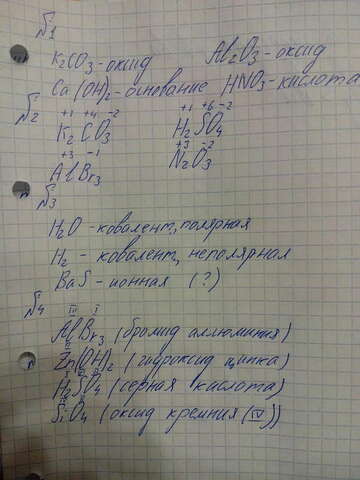 №1
K₂CO₃-оксид Al₂O₃-оксид
Ca(OH)₂-основание HNO₃-кислота
№2
+1 +4 -2 +1 +6 -2
K₂CO₃ H₂SO₄
+3 -1 +3 -2
AlBr₃ N₂O₃
№3
H₂O-ковалент, полярная
H₂ - ковалент, неполярная
BaS-ионная (?)
№4
III I
AlBr₃ (бромид аллюминия)
Zn(OH)₂ (гидроксид цинка)
H₂SO₄ (серная кислота)
SiO₄ (оксид кремния (IV))